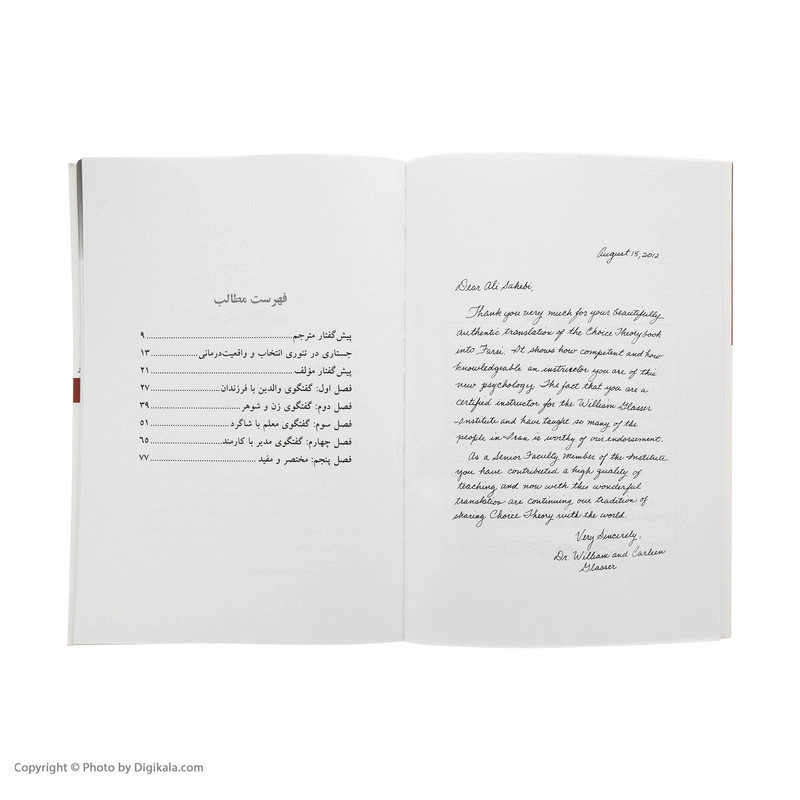 فهرست مطالب
پیش‌گفتار مترجم ........ ۹
جستاری در تئوری انتخاب و واقعیت‌درمانی ........ ۱۳
پیش‌گفتار مؤلف ........ ۲۱
فصل اول: گفتگوی والدین با فرزندان ........ ۲۷
فصل دوم: گفتگوی زن و شوهر ........ ۳۹
فصل سوم: گفتگوی معلم با شاگرد ........ ۵۱
فصل چهارم: گفتگوی مدیر با کارمند ........ ۶۵
فصل پنجم: مختصر و مفید ........ ۷۷
August 15, 2012
Dear Ali Sahebi,
Thank you very much for your beautifully
authentic translation of the Choice Theory book
into Farsi. It shows how competent and how
knowledgable an instructor you are of this
new psychology. The fact that you are a
certified instructor for the William Glasser
Institute and have taught so many of the
people in Iran is worthy of our endorsement.
As a Senior Faculty Member of the Institute
you have contributed a high quality of
teaching and now with this wonderful
translation are continuing our tradition of
sharing Choice Theory with the world.
Very Sincerely,
Dr. William and Carleen
Glasser
Copyright © Photo by Digikala.com